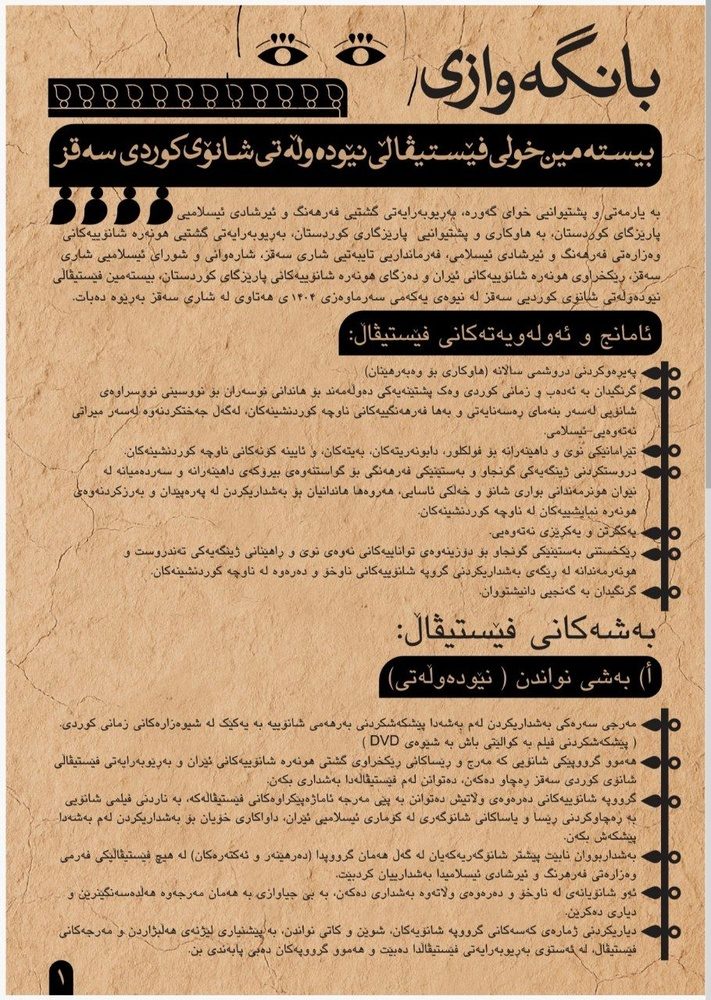 بانگەوازی
بیستەمین خولی فێستیڤاڵی نێودەوڵەتی شانۆی کوردی سەقز
بە یارمەتی و پشتیوانیی خوای گەورە، بەڕێوبەرایەتی گشتیی فەرهەنگ و ئیرشادی ئیسلامیی
پارێزگای کوردستان، بە هاوکاری و پشتیوانیی پارێزگاری کوردستان، بەڕێوبەرایەتی گشتیی هونەرە شانۆییەکانی
وەزارەتی فەرهەنگ و ئیرشادی ئیسلامی، فەرمانداریی تایبەتیی شاری سەقز، شارەوانی و شورای ئیسلامیی شاری
سەقز، ڕێکخراوی هونەرە شانۆییەکانی ئێران و دەزگای هونەرە شانۆییەکانی پارێزگای کوردستان، بیستەمین فێستیڤاڵی
نێودەوڵەتی شانۆی کوردیی سەقز لە نیوەی یەکەمی سەرماوەزی ١٤٠٤ ی هەتاوی لە شاری سەقز بەڕێوە دەبات.
ئامانج و ئەولەویەتەکانی فێستیڤاڵ:
پەیڕەوکردنی دروشمی ساڵانە (هاوکاری بۆ وەبەرهێنان)
گرنگیدان بە ئەدەب و زمانی کوردی وەک پشتێنەیەکی دەوڵەمەند بۆ هاندانی نوسەران بۆ نووسینی نووسراوەی
شانۆیی لەسەر بنەمای ڕەسەنایەتی و بەها فەرهەنگییەکانی ناوچە کوردنشینەکان، لەگەل جەختکردنەوە لەسەر میراتی
نەتەوەیی-ئیسلامی.
تێڕامانێکی نوێ و داهێنەرانە بۆ فولکلور، دابونەریتەکان، بەیتەکان، و ئایینە کۆنەکانی ناوچە کوردنشینەکان.
دروستکردنی ژینگەیەکی گونجاو و بەستێنێکی فەرهەنگی بۆ گواستنەوەی بیرۆکەی داهێنەرانە و سەردەمیانە لە
نێوان هونەرمەندانی بواری شانۆ و خەڵکی ئاسایی، هەروەها هاندانیان بۆ بەشداریکردن لە پەرەپێدان و بەرزکردنەوەی
هونەرە نمایشییەکان لە ناوچە کوردنشینەکان.
یەکگرتن و یەکڕێزی نەتەوەیی.
ڕێکخستنی بەستێنێکی گونجاو بۆ دۆزینەوەی تواناییەکانی نەوەی نوێ و ڕاهێنانی ژینگەیەکی تەندروست و
هونەرمەندانە لە ڕێگەی بەشداریکردنی گرووپە شانۆییەکانی ناوخۆ و دەرەوە لە ناوچە کوردنشینەکان.
گرنگیدان بە گەنجیی دانیشتووان.
بەشەکانی فێستیڤاڵ:
أ) بەشی نواندن ( نێودەوڵەتی)
مەرجی سەرەکی بەشداریکردن لەم بەشەدا پێشکەشکردنی بەرهەمی شانۆییە بە یەکێک لە شیوەزارەکانی زمانی کوردی.
( پێشکەشکردنی فیلم بە کوالێتی باش بە شێوەی DVD )
هەموو گرووپێکی شانۆیی کە مەرج و ڕێساکانی ڕێکخراوی گشتی هونەرە شانۆییەکانی ئێران و بەڕێوبەرایەتی فێستیڤاڵی
شانۆی کوردی سەقز ڕەچاو دەکەن، دەتوانن لەم فێستیڤاڵەدا بەشداری بکەن.
گرووپە شانۆییەکانی دەرەوەی ولاتیش دەتوانن بە پێی مەرجە ئاماژەپێکراوەکانی فێستیڤاڵەکە، بە ناردنی فیلمی شانۆیی
بە ڕەچاوکردنی ڕێسا و یاساکانی شانۆگەری لە کۆماری ئیسلامیی ئێران، داواکاری خۆیان بۆ بەشداریکردن لەم بەشەدا
پێشکەش بکەن.
بەشداربووان نابێت پێشتر شانۆگەریەکەیان لە گەل هەمان گرووپدا (دەرهێنەر و ئەکتەرەکان) لە هیچ فێستیڤاڵێکی فەرمی
وەزارەتی فەرهەنگ و ئیرشادی ئیسلامیدا بەشدارییان کردبێت.
ئەو شانۆیانەی لە ناوخۆ و دەرەوەی ولاتەوە بەشداری دەکەن، بە بێ جیاوازی بە هەمان مەرجەوە هەڵدەسەنگێنرێن و
دیاری دەکرێن.
دیاریکردنی ژمارەی کەسەکانی گرووپە شانۆیەکان، شوێن و کاتی نواندن، بە پێشنیاری لێژنەی هەڵبژاردن و مەرجەکانی
فێستیڤاڵ، لە ئەستۆی بەڕێوبەرایەتی فێستیڤاڵدا دەبێت و هەموو گرووپەکان دەبێ پابەندی بن.
١